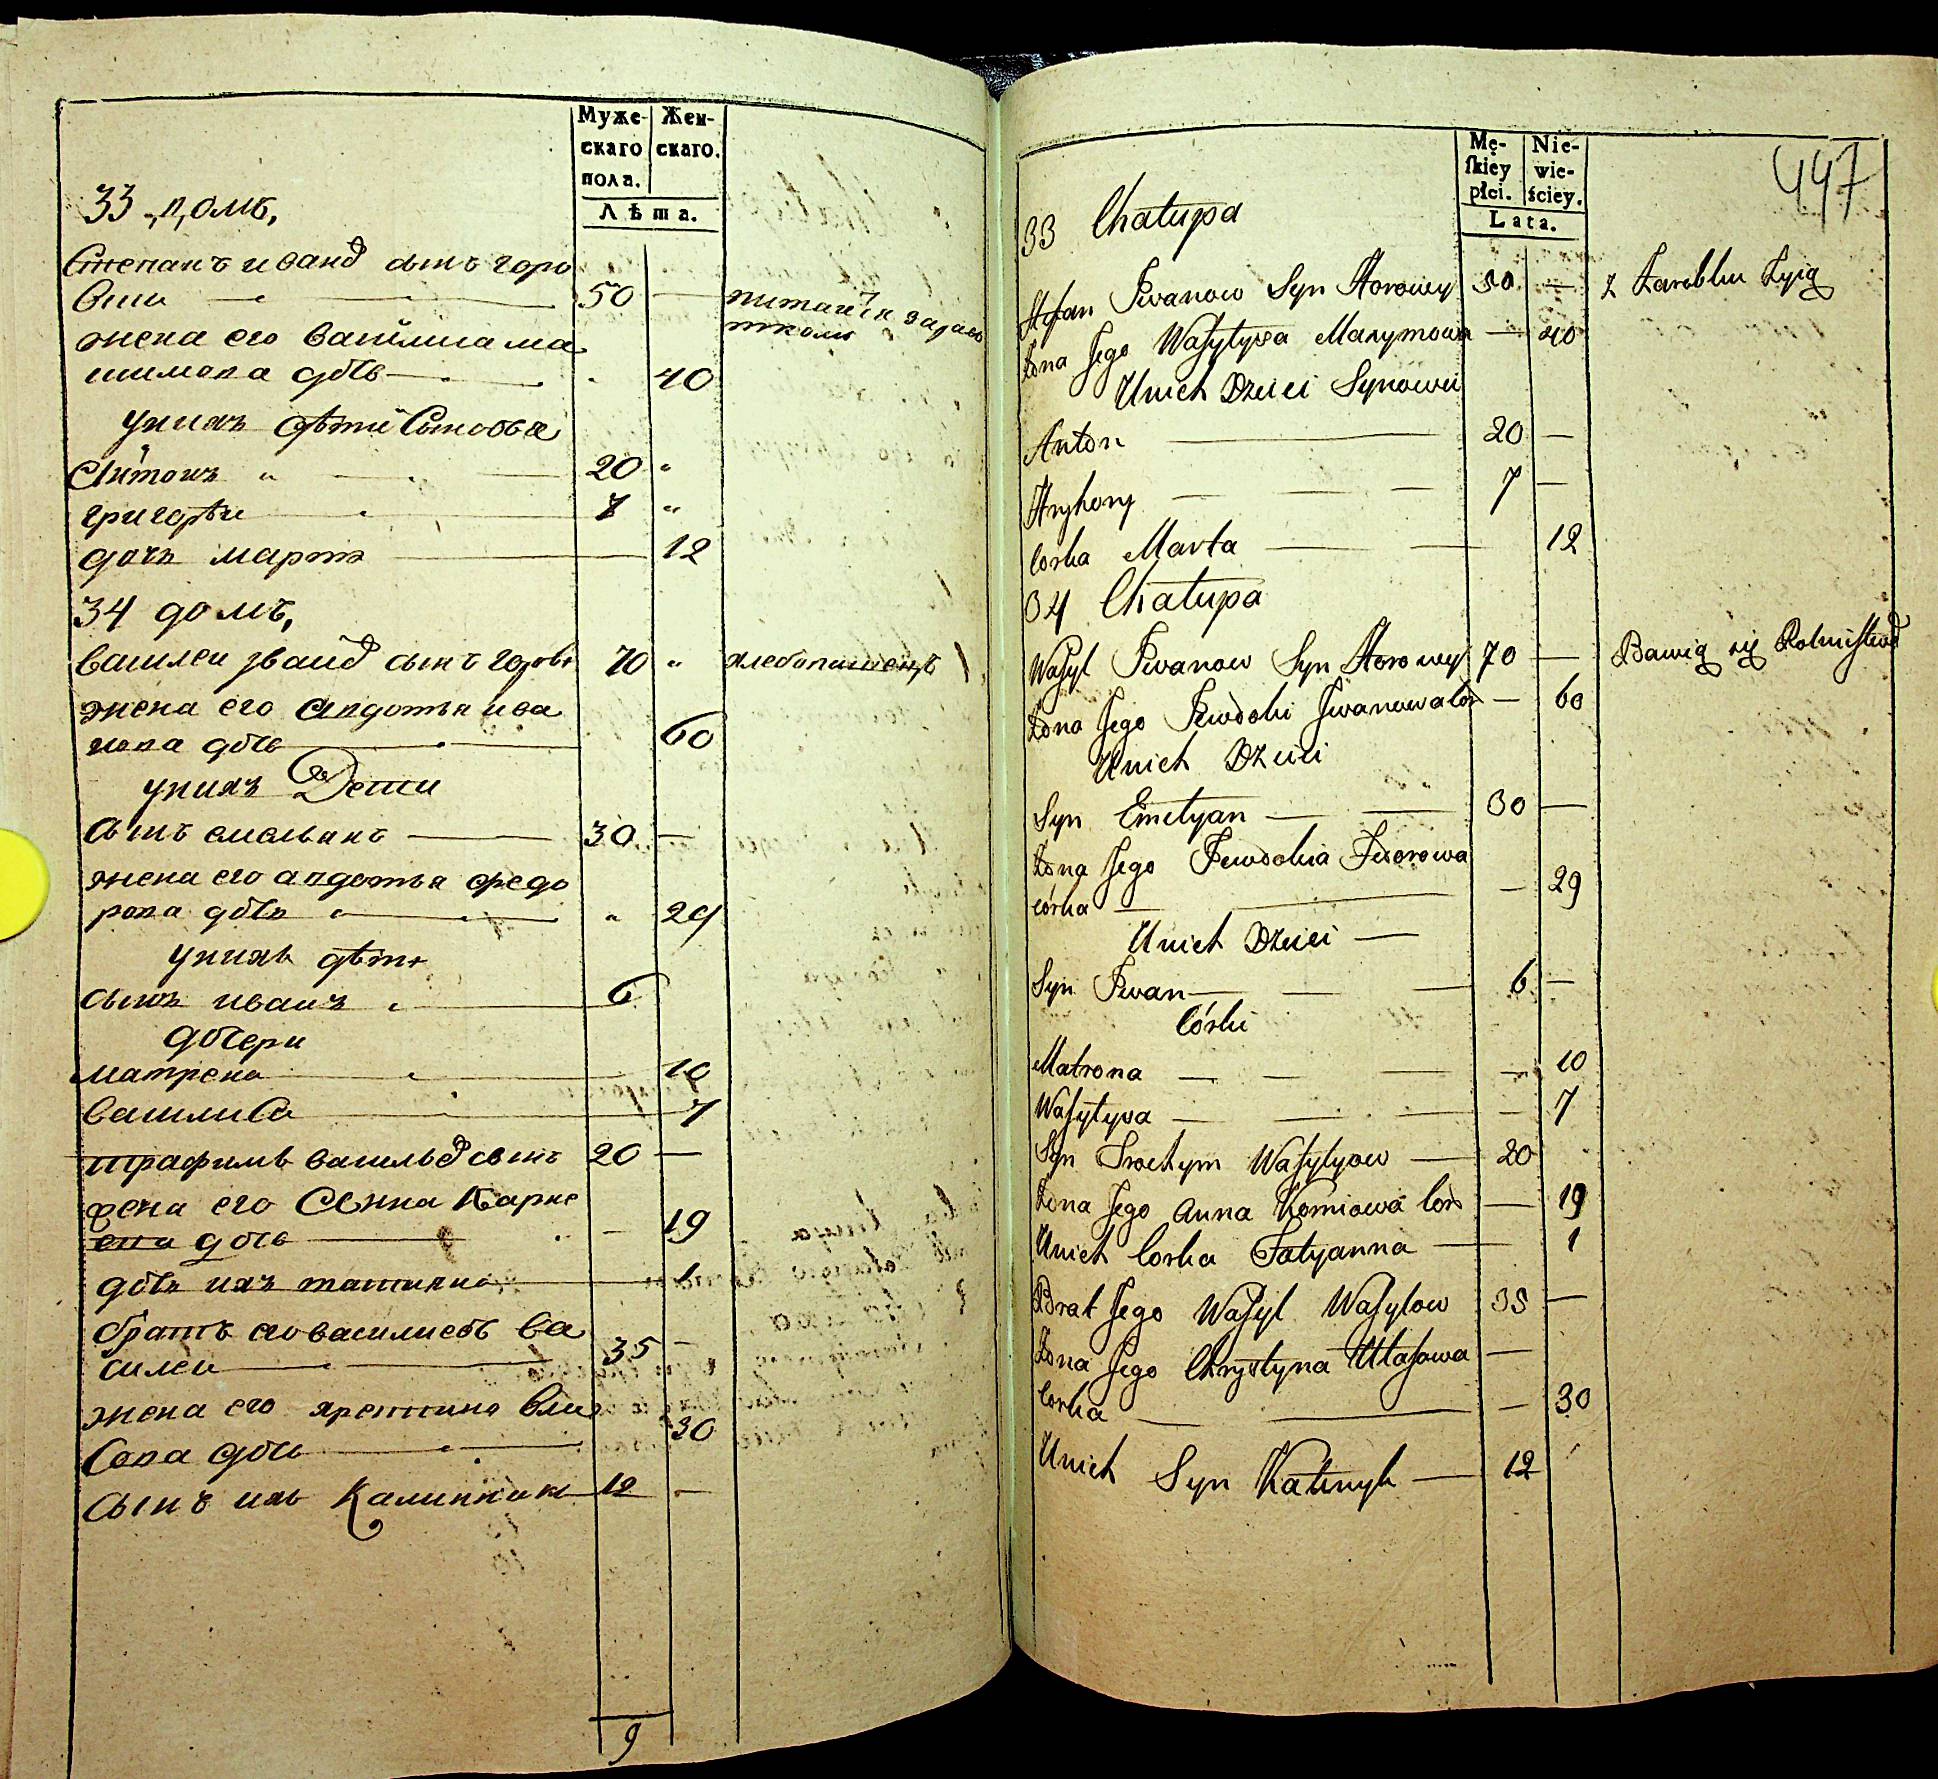 Муже-
скаго
пола.
Жен-
скаго.
Лѣта.
33 домъ,
Степанъ иванд сынъ горо
вии 50 — питаиса зарабо
тком
жена его василиса ма
ксимова дочь 40
у них дѣти Сыновья
Антонъ 20
григорѣи 7
дочь марта 12
34 домъ,
василеи иванд сынъ 70 хлебопашенць
жена его авдотья ива
нова дочь 60
у них Дети
сынъ емельянъ 30 —
жена его авдотья федо
рова дочь 29
у них дѣти
сынъ иванъ 6
дочери
матрена 10
василиса 7
трафимъ васильд сынъ 20 —
жена его Анна Карне
ева дочь — 19
дочь их татияна 1
братъ его василиевъ ва
силеи 35 —
жена его христина вла
сова дочь 30
сынъ их Калинникъ 12 —
9
Mę-
skiey
płci.
Nie-
wie-
ściey.
Lata.
447
33 Chałupa
Stefan Iwanow Syn Horowy 50 — z Zarobku Żyią
Żona Jego Wasylysa Maxymowa — 40
U nich Dzieci Synowie
Anton 20 —
Hryhory 7 —
Corka Marta 12
34 Chałupa
Wasyl Iwanow Syn Horowy 70 — Bawią się Rolnictwem
Żona Jego Jewdoki Iwanowa Cor — 60
U nich Dzieci
Syn Emelyan 30 —
Żona Jego Jewdokia Fedorowa
córka — 29
U nich Dzieci —
Syn Iwan 6 —
Córki
Matrona — 10
Wasylysa — 7
Syn Trochym Wasylyow — 20
Żona Jego Anna Korniowa Cor — 19
U nich Corka Tatyanna — 1
Brat Jego Wasyl Wasylow 35 —
Żona Jego Chrystyna Ułasowa —
Corka — 30
U nich Syn Kalenyk — 12